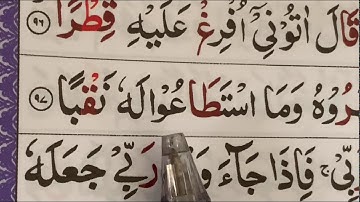 قَالَ اٰتُوْنِيْٓ اُفْرِغْ عَلَيْهِ قِطْرًا ﴿۹۶﴾
رُوْهُ وَمَا اسْتَطَاعُوْا لَهٗ نَقْبًا ﴿۹۷﴾
بِّيْ ۚ فَاِذَا جَآءَ رَبِّيْ جَعَلَهٗ